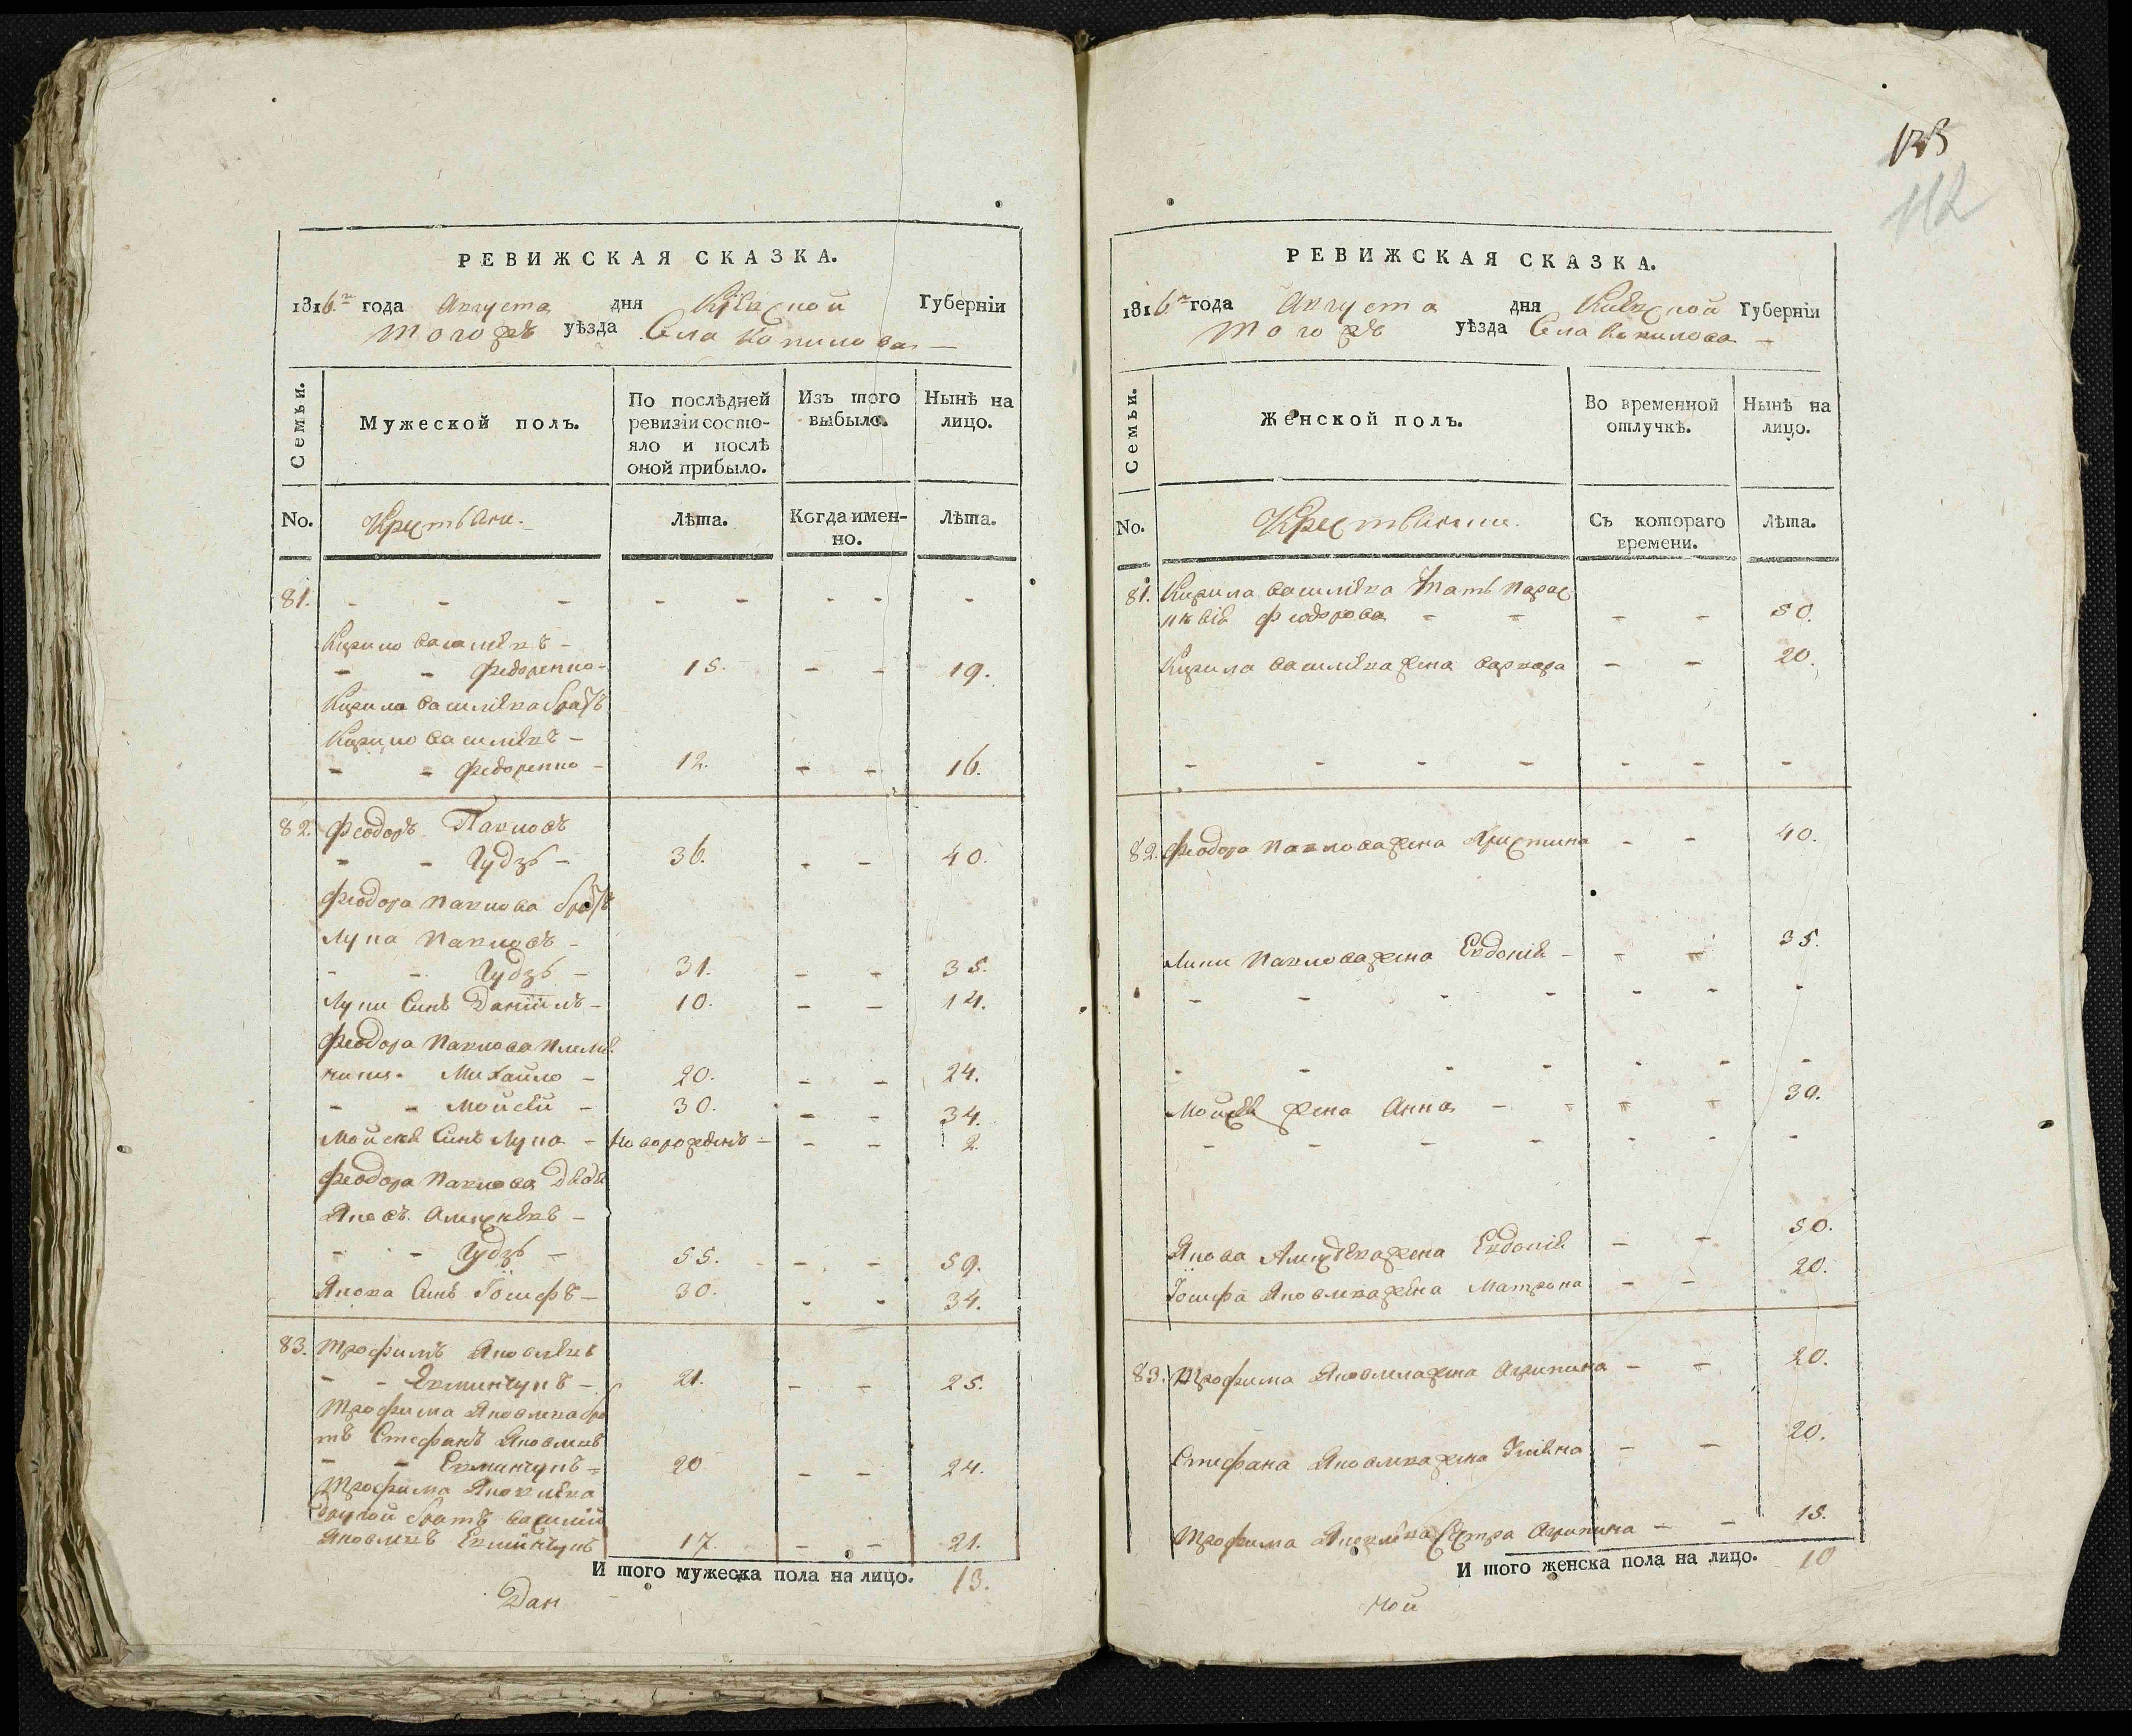 РЕВИЖСКАЯ СКАЗКА.
1816го года Августа дня Кіевской Губерніи
Тогожъ уѣзда Села Копилова
Семьи.
Мужеской полъ.
По послѣдней ревизіи состояло и послѣ оной прибыло.
Изъ того выбыло.
Нынѣ на лицо.
No.
Крестьяне.
Лѣта.
Когда именно.
Лѣта.
81. - - - - - - - -
Кирило Василіевъ -
- - Федоренко - 15. - - 19.
Кирила Василіева братъ
Кирило Василіевъ -
- - Федоренко - 12. - - 16.
82. Феодоръ Павловъ
- - Гудзь - 36. - - 40.
Феодора Павлова братъ
Лупа Павловъ -
- - Гудзь - 31. - - 35.
Лупи Синъ Даніилъ - 10. - - 14.
Феодора Павлова племѣ
Михайло - 20. - - 24.
- - Мойсей - 30. - - 34.
Мойсея Синъ Лупа - Новорожденъ - - - 2.
Феодора Павлова дядя
Яковъ Алексѣевъ -
- - Гудзь - 55. - - 59.
Якова Синъ Іосифъ - 30. - - 34.
83. Трофимъ Яковлевъ
- - 21. - - 25.
Трофима Яковлева бра
тъ Стефанъ Яковлевъ
- - 20 - - 24.
Трофима Яковлева
другой братъ Василій
Яковлевъ 17. - - 21.
И того мужеска пола на лицо. 13.
Дан
112
РЕВИЖСКАЯ СКАЗКА.
1816го года Августа дня Кіевской Губерніи
Тогожъ уѣзда Села Копилова -
Семьи.
Женской полъ.
Во временной отлучкѣ.
Нынѣ на лицо.
No.
Крестьянки.
Съ котораго времени.
Лѣта.
81. Кирила Василіева мать Парас
кѣвія Феодорова - - - - 50.
Кирила Василіева жена Варвара - - 20.
- - - - - - -
82. Феодора Павлова жена Христина - - 40.
Лупи Павлова жена Евдокія - - - 35.
- - - - - - -
- - - - - - -
Мойсея жена Анна - - - - 30.
- - - - - - -
Якова Алексѣева жена Евдокія - - 50.
Іосифа Яковлева жена Матрона - - 20.
83. Трофима Яковлева жена Агрипина - - 20.
Стефана Яковлева жена Уліяна - - 20.
Трофима Яковлева Сестра Агрипина - - 15.
И того женска пола на лицо. 10